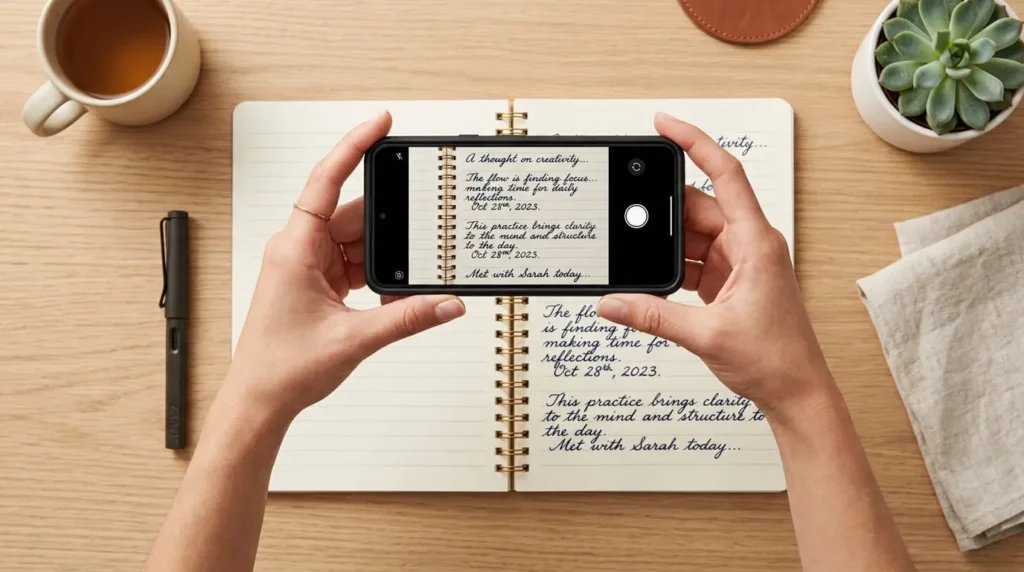 A thought on creativity...
The flow is finding focus...
making time for daily
reflections.
Oct 28th, 2023.
This practice brings clarity
to the mind and structure
to the day.
Oct 28th, 2023.
Met with Sarah today...
The flo
is finding fo
making time for
reflections.
Oct 28th, 2023.
This practice brings clarity
to the mind and structure to
the day.
Met with Sarah today...